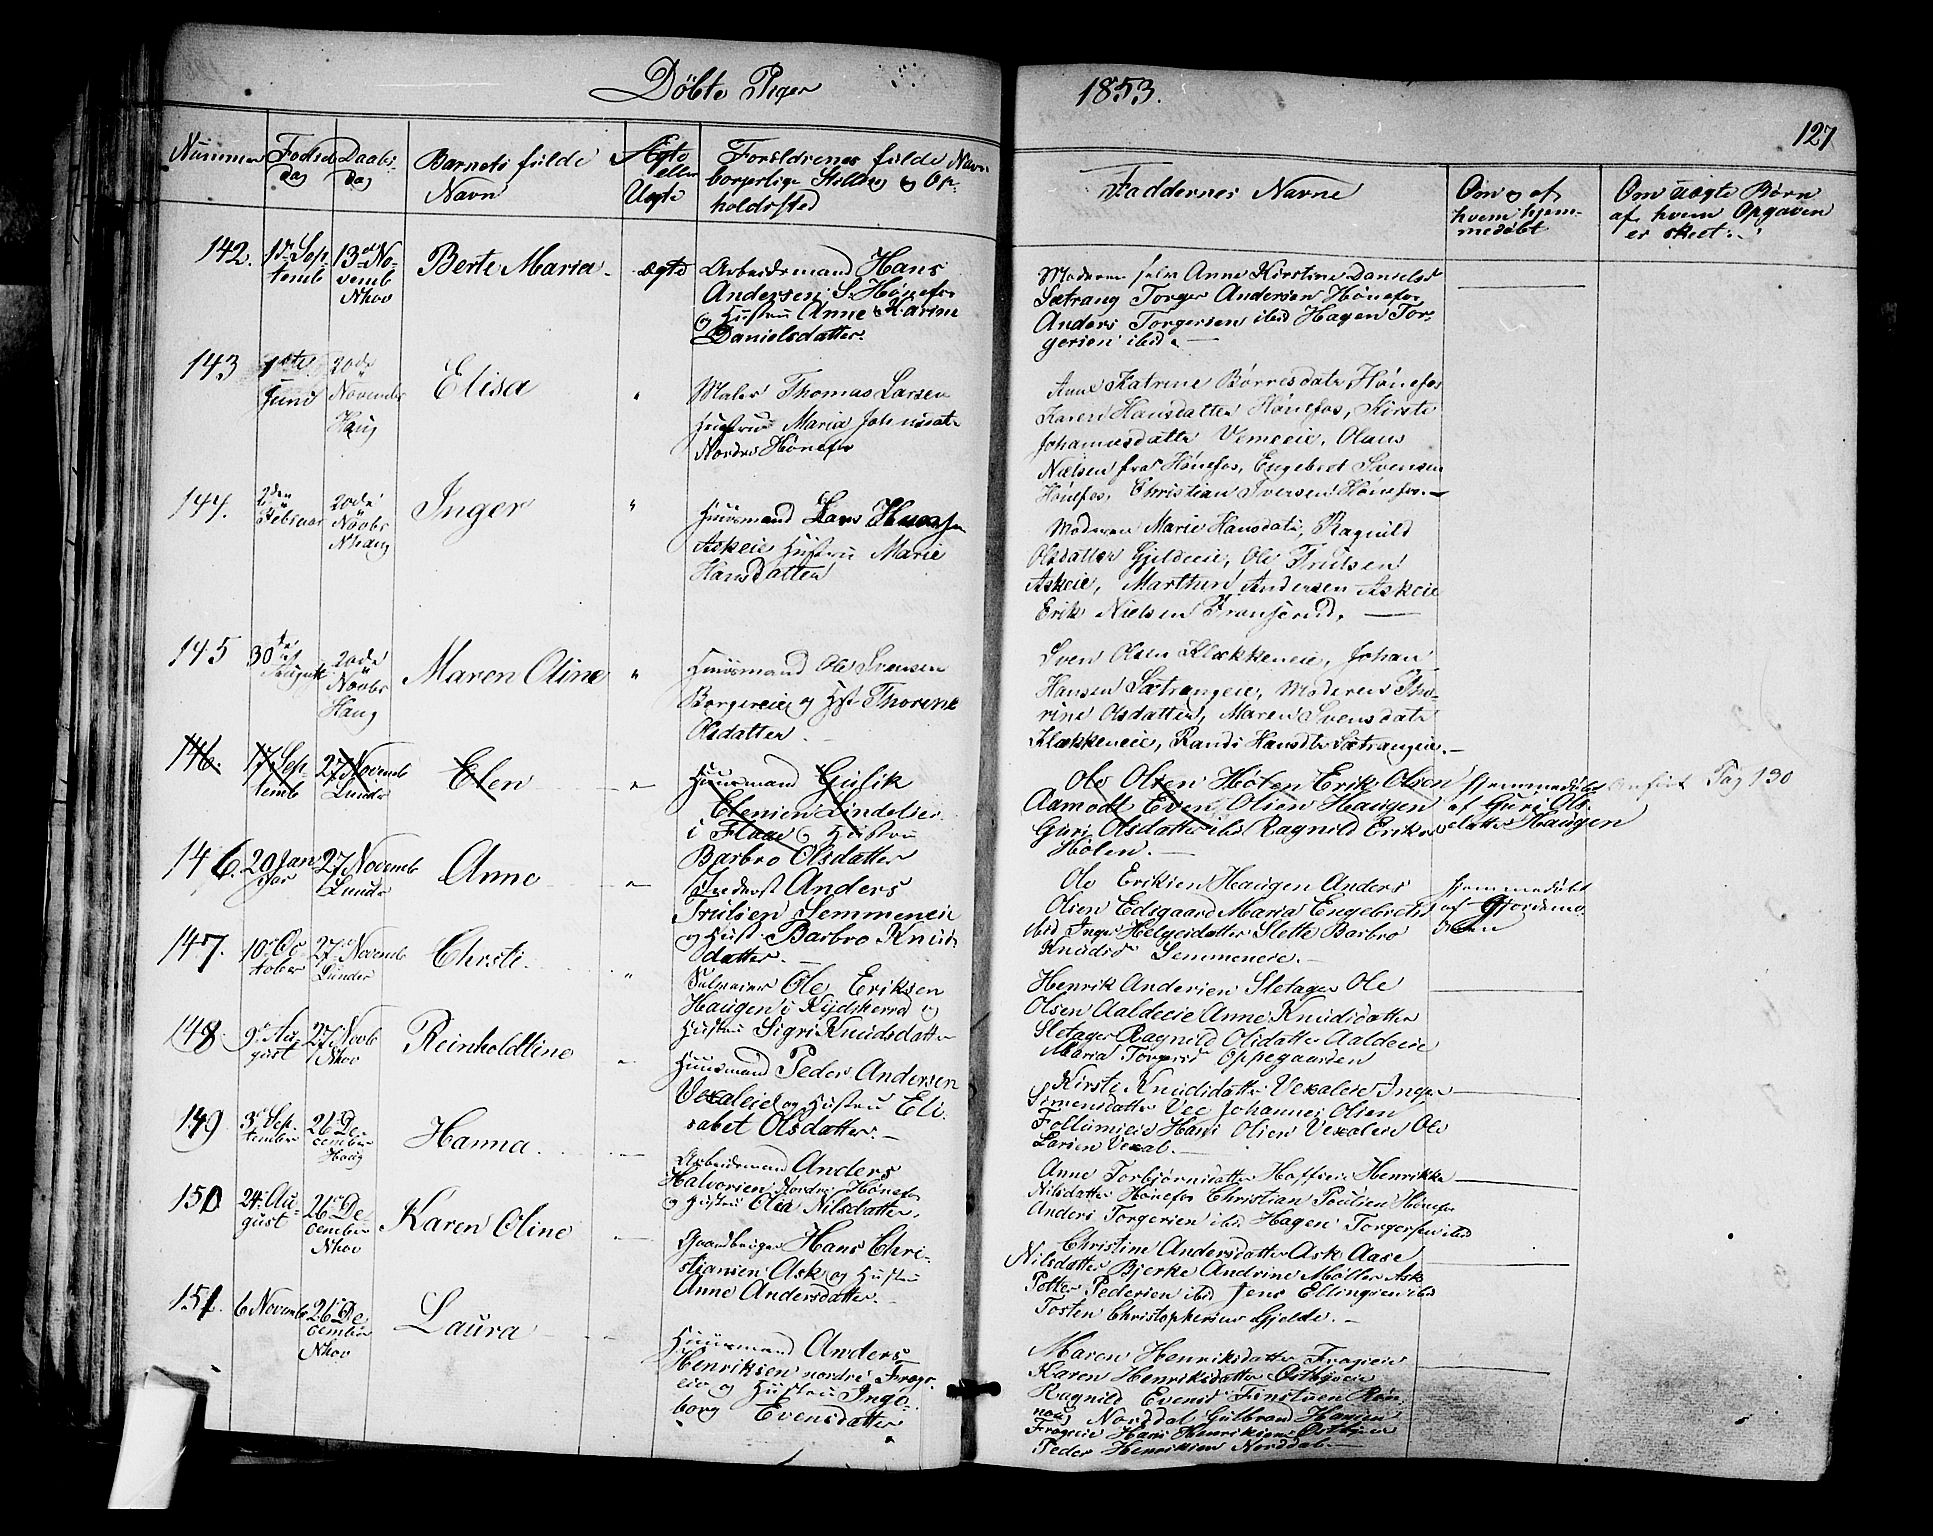 Döbte Piger
1853.
127
Nummer
Födsels
dag
Daabs
dag
Barnets fulde
Navn
Ægte
eller
Uegte
Forældrenes fulde Navn
borgerlige Stilling og Op-
holdssted
Faddernes Navne
Om og af
hvem hjem-
medöbt
Om uægte Børn
af hvem Opgaven
er skeet
142.
Sep-
temb
13de No-
vemb
Nhov
Berte Maria
ægte
Arbeidsmand Hans
Andersen S. Hönefos
og Hustru Anne Karine
Danielsdatter
Moderen selv Anne Kirstine Danielsd
Sætrang Torger Andersen Hönefos,
Anders Torgersen ibid Hagen Tor-
gersen ibid
143
1ste
Juni
20de
Novembr
Haug
Elisa
"
Maler Thomas Larsen
Hustrue Maria Johnsdatr
Nordre Hönefos
Anne Katrine Börresdatr Hönefos
Karen Hansdatter Hönefos, Kirsti
Johannesdatter Vemeeie, Olaus
Nielsen fra Hönefos, Engebret Svensen
Hönefos, Christian Iversen Hönefos.
144.
2den
Februar
20de
Novbr
Nhaug
Inger
"
Huusmand Lars Hansen
Askeie Hustru Marie
Hansdatter
Moderen Marie Hansdatr, Ragnild
Olsdatter Gjeldeeie, Ole Trulsen
Askeie, Marthin Andersen Askeie
Erik Nielsen
145
30de
August
20de
Novbr
Haug
Maren Oline
"
Huusmand Ole Svensen
Borgereie og Hst Thorine
Olsdatter
Sven Olsen Klækkeneie, Johan
Hansen Sætrangeie, Moderen Tho-
rine Olsdatter, Maren Svensdatr
Klækkeneie, Randi Hansdtr Sætrangeie.
146.
17 Sep-
temb
27 Novemb
Lunder
Elen
"
Huusmand Gulik
Elensen Lindelse
i Flaae og Hustru
Barbro Olsdatter
Ole Olsen Holen Erik Olsen
Aamodt Even Olsen Haugen
Guri Olsdatter ibid Ragnild Eriksd
Holen.
Hjemmedöbt
af Guri Ols-
datter Haugen
anfört Pag 130
146.
20 Jan
uar
27 Novemb
Lunder
Anne
"
Inderst Anders
Trulsen Semmeneie
og Hust. Barbro Knuds
datter.
Ole Eriksen Haugen Anders
Olsen Edsgaard Maria Engebretsd
ibid Inger Helgesdatter Slette Barbro
Knudsd Semmeneie.
Hjemmedöbt
af Gjordemo
deren
147.
10 Oc
tober
27 Novemb
Lunder
Christi
"
Selveier Ole Eriksen
Haugen i Nydskerud og
Hustru Sigri Knudsdatter
Henrik Andersen Sletager Ole
Olsen Aaldeeie Anne Knudsdatter
Sletager Ragnild Olsdatter Aaldeeie
Maria Torgersd Oppegaarden
148.
9 Au
gust
27 Novb
Nhov
Reinholdtine
"
Huusmand Peder Andersen
Vexaleie og Hustru Eli-
sabet Olsdatter.
Kirsti Knudsdatter Vexaleie Inger
Simensdatter Vee Johannes Olsen
Follumeie Hans Olsen Vexaleie Ole
Larsen Vexal.
149
3 Sep-
tember
26 De
cember
Haug
Hanna
Arbeidsmand Anders
Halvorsen Nordre Hönefos
og Hustru Olia Nilsdatter.
Anne Torbjörnsdatter Hofseie Henrikke
Nilsdatter Hönefos Christian Poulsen Hönefos
Anders Torgersen ibid Hagen Torgersen ibid
150
24 Au-
gust
26 De
cember
Nhov
Karen Oline
Gaardbruger Hans Chri-
stiansen Ask og Hustru
Anne Andersdatter.
Christine Andersdatter Ask Aase
Nilsdatter Bjerke Andrine Möller Ask
Petter Pedersen ibid Jens Ellingsen ibid
Tosten Christophersen Gjelde.
151.
6 Novemb
26 De
cember
Nhov
Laura
Huusmand Anders
Henriksen nordre Frog-
eie og Hustru Inge-
borg Evensdatter
Maren Henriksdatter Frogeie
Karen Henriksdatter Östbyeie
Ragnild Evensd Finstuen Rön
nau Norddal Gulbrand Hansen
Frogeie Hans Henriksen Östbyeie
Peder Henriksen Norddal